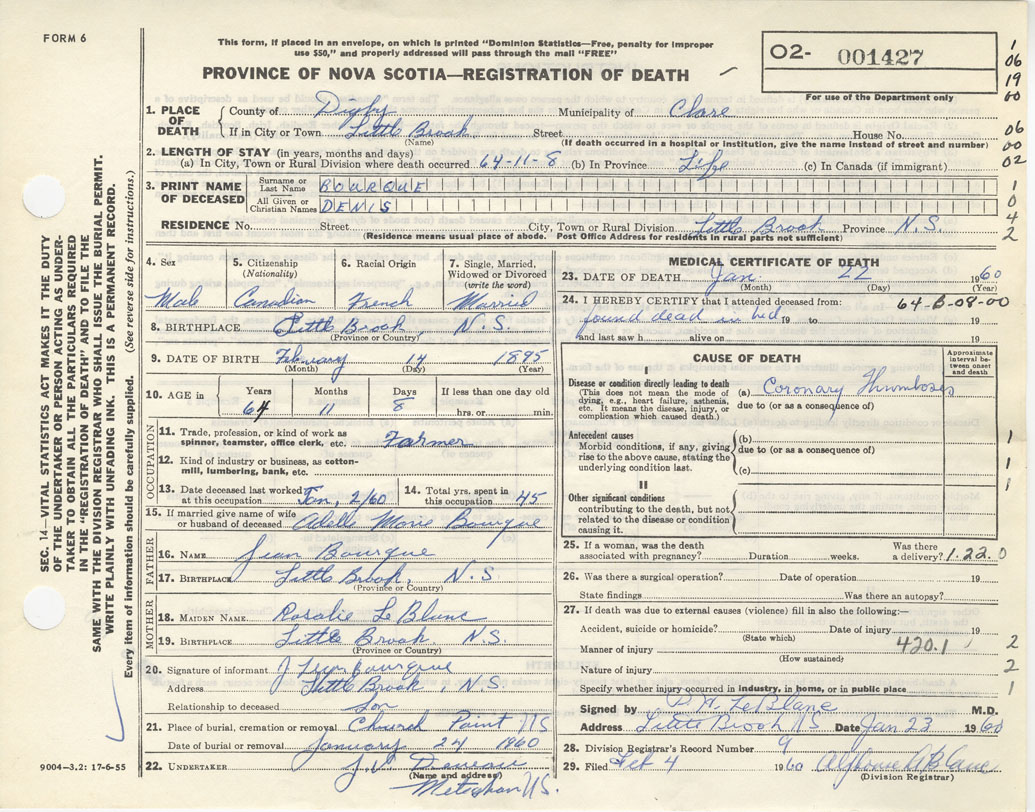 FORM 6
This form, if placed in an envelope, on which is printed "Dominion Statistics—Free, penalty for improper
use $50," and properly addressed will pass through the mail "FREE"
PROVINCE OF NOVA SCOTIA—REGISTRATION OF DEATH
02- 001427
For use of the Department only
1
06
19
00
1. PLACE OF DEATH
County of Digby Municipality of Clare
If in City or Town Little Brook Street House No.
(Name) (If death occurred in a hospital or institution, give the name instead of street and number)
06
00
02
2. LENGTH OF STAY (in years, months and days)
(a) In City, Town or Rural Division where death occurred 64-11-8 (b) In Province Life (c) In Canada (if immigrant)
3. PRINT NAME OF DECEASED
Surname or Last Name BOURQUE
All Given or Christian Names DENIS
1
0
4
2
RESIDENCE No. Street City, Town or Rural Division Little Brook Province N.S.
(Residence means usual place of abode. Post Office Address for residents in rural parts not sufficient)
SEC. 14—VITAL STATISTICS ACT MAKES IT THE DUTY
OF THE UNDERTAKER OR PERSON ACTING AS UNDER-
TAKER TO OBTAIN ALL THE PARTICULARS REQUIRED
IN THE "REGISTRATION OF DEATH" AND TO FILE THE
SAME WITH THE DIVISION REGISTRAR WHO SHALL ISSUE THE BURIAL PERMIT.
WRITE PLAINLY WITH UNFADING INK. THIS IS A PERMANENT RECORD.
Every item of information should be carefully supplied. (See reverse side for instructions.)
4. Sex Male
5. Citizenship (Nationality) Canadian
6. Racial Origin French
7. Single, Married, Widowed or Divorced (write the word) Married
8. BIRTHPLACE Little Brook, N.S.
(Province or Country)
9. DATE OF BIRTH February 14 1895
(Month) (Day) (Year)
10. AGE in Years 64 Months 11 Days 8 If less than one day old hrs. or min.
OCCUPATION
11. Trade, profession, or kind of work as spinner, teamster, office clerk, etc. Farmer
12. Kind of industry or business, as cotton-mill, lumbering, bank, etc.
13. Date deceased last worked at this occupation Jan, 2/60
14. Total yrs. spent in this occupation 45
15. If married give name of wife or husband of deceased Adelle Marie Bourque
FATHER
16. NAME Jean Bourque
17. BIRTHPLACE Little Brook, N.S
(Province or Country)
MOTHER
18. MAIDEN NAME Rosalie LeBlanc
19. BIRTHPLACE Little Brook, N.S.
(Province or Country)
20. Signature of informant J. Bourque
Address Little Brook, N.S
Relationship to deceased Son
21. Place of burial, cremation or removal Church Point NS
Date of burial or removal January 24 1960
22. UNDERTAKER
(Name and address)
Meteghan NS.
9004—3.2: 17-6-55
MEDICAL CERTIFICATE OF DEATH
23. DATE OF DEATH Jan. 22 1960
(Month) (Day) (Year)
24. I HEREBY CERTIFY that I attended deceased from: 64-B-08-00
found dead in bed 19 to 19
and last saw h alive on 19
CAUSE OF DEATH
Approximate interval between onset and death
I
Disease or condition directly leading to death
(This does not mean the mode of dying, e.g., heart failure, asthenia, etc. It means the disease, injury, or complication which caused death.)
(a) Coronary Thrombosis
due to (or as a consequence of)
Antecedent causes
Morbid conditions, if any, giving rise to the above cause, stating the underlying condition last.
(b)
due to (or as a consequence of)
(c)
1
1
1
II
Other significant conditions contributing to the death, but not related to the disease or condition causing it.
25. If a woman, was the death associated with pregnancy? Duration weeks. Was there a delivery? 1.22.0
26. Was there a surgical operation? Date of operation 19
State findings Was there an autopsy?
27. If death was due to external causes (violence) fill in also the following:—
Accident, suicide or homicide? Date of injury 19
(State which)
Manner of injury 420.1 2
(How sustained)
Nature of injury 2
Specify whether injury occurred in industry, in home, or in public place 1
Signed by P.H. LeBlanc M.D.
Address Little Brook NS Date Jan 23 1960
28. Division Registrar's Record Number 9
29. Filed Feb 4 1960 Alphonse A LeBlanc
(Division Registrar)